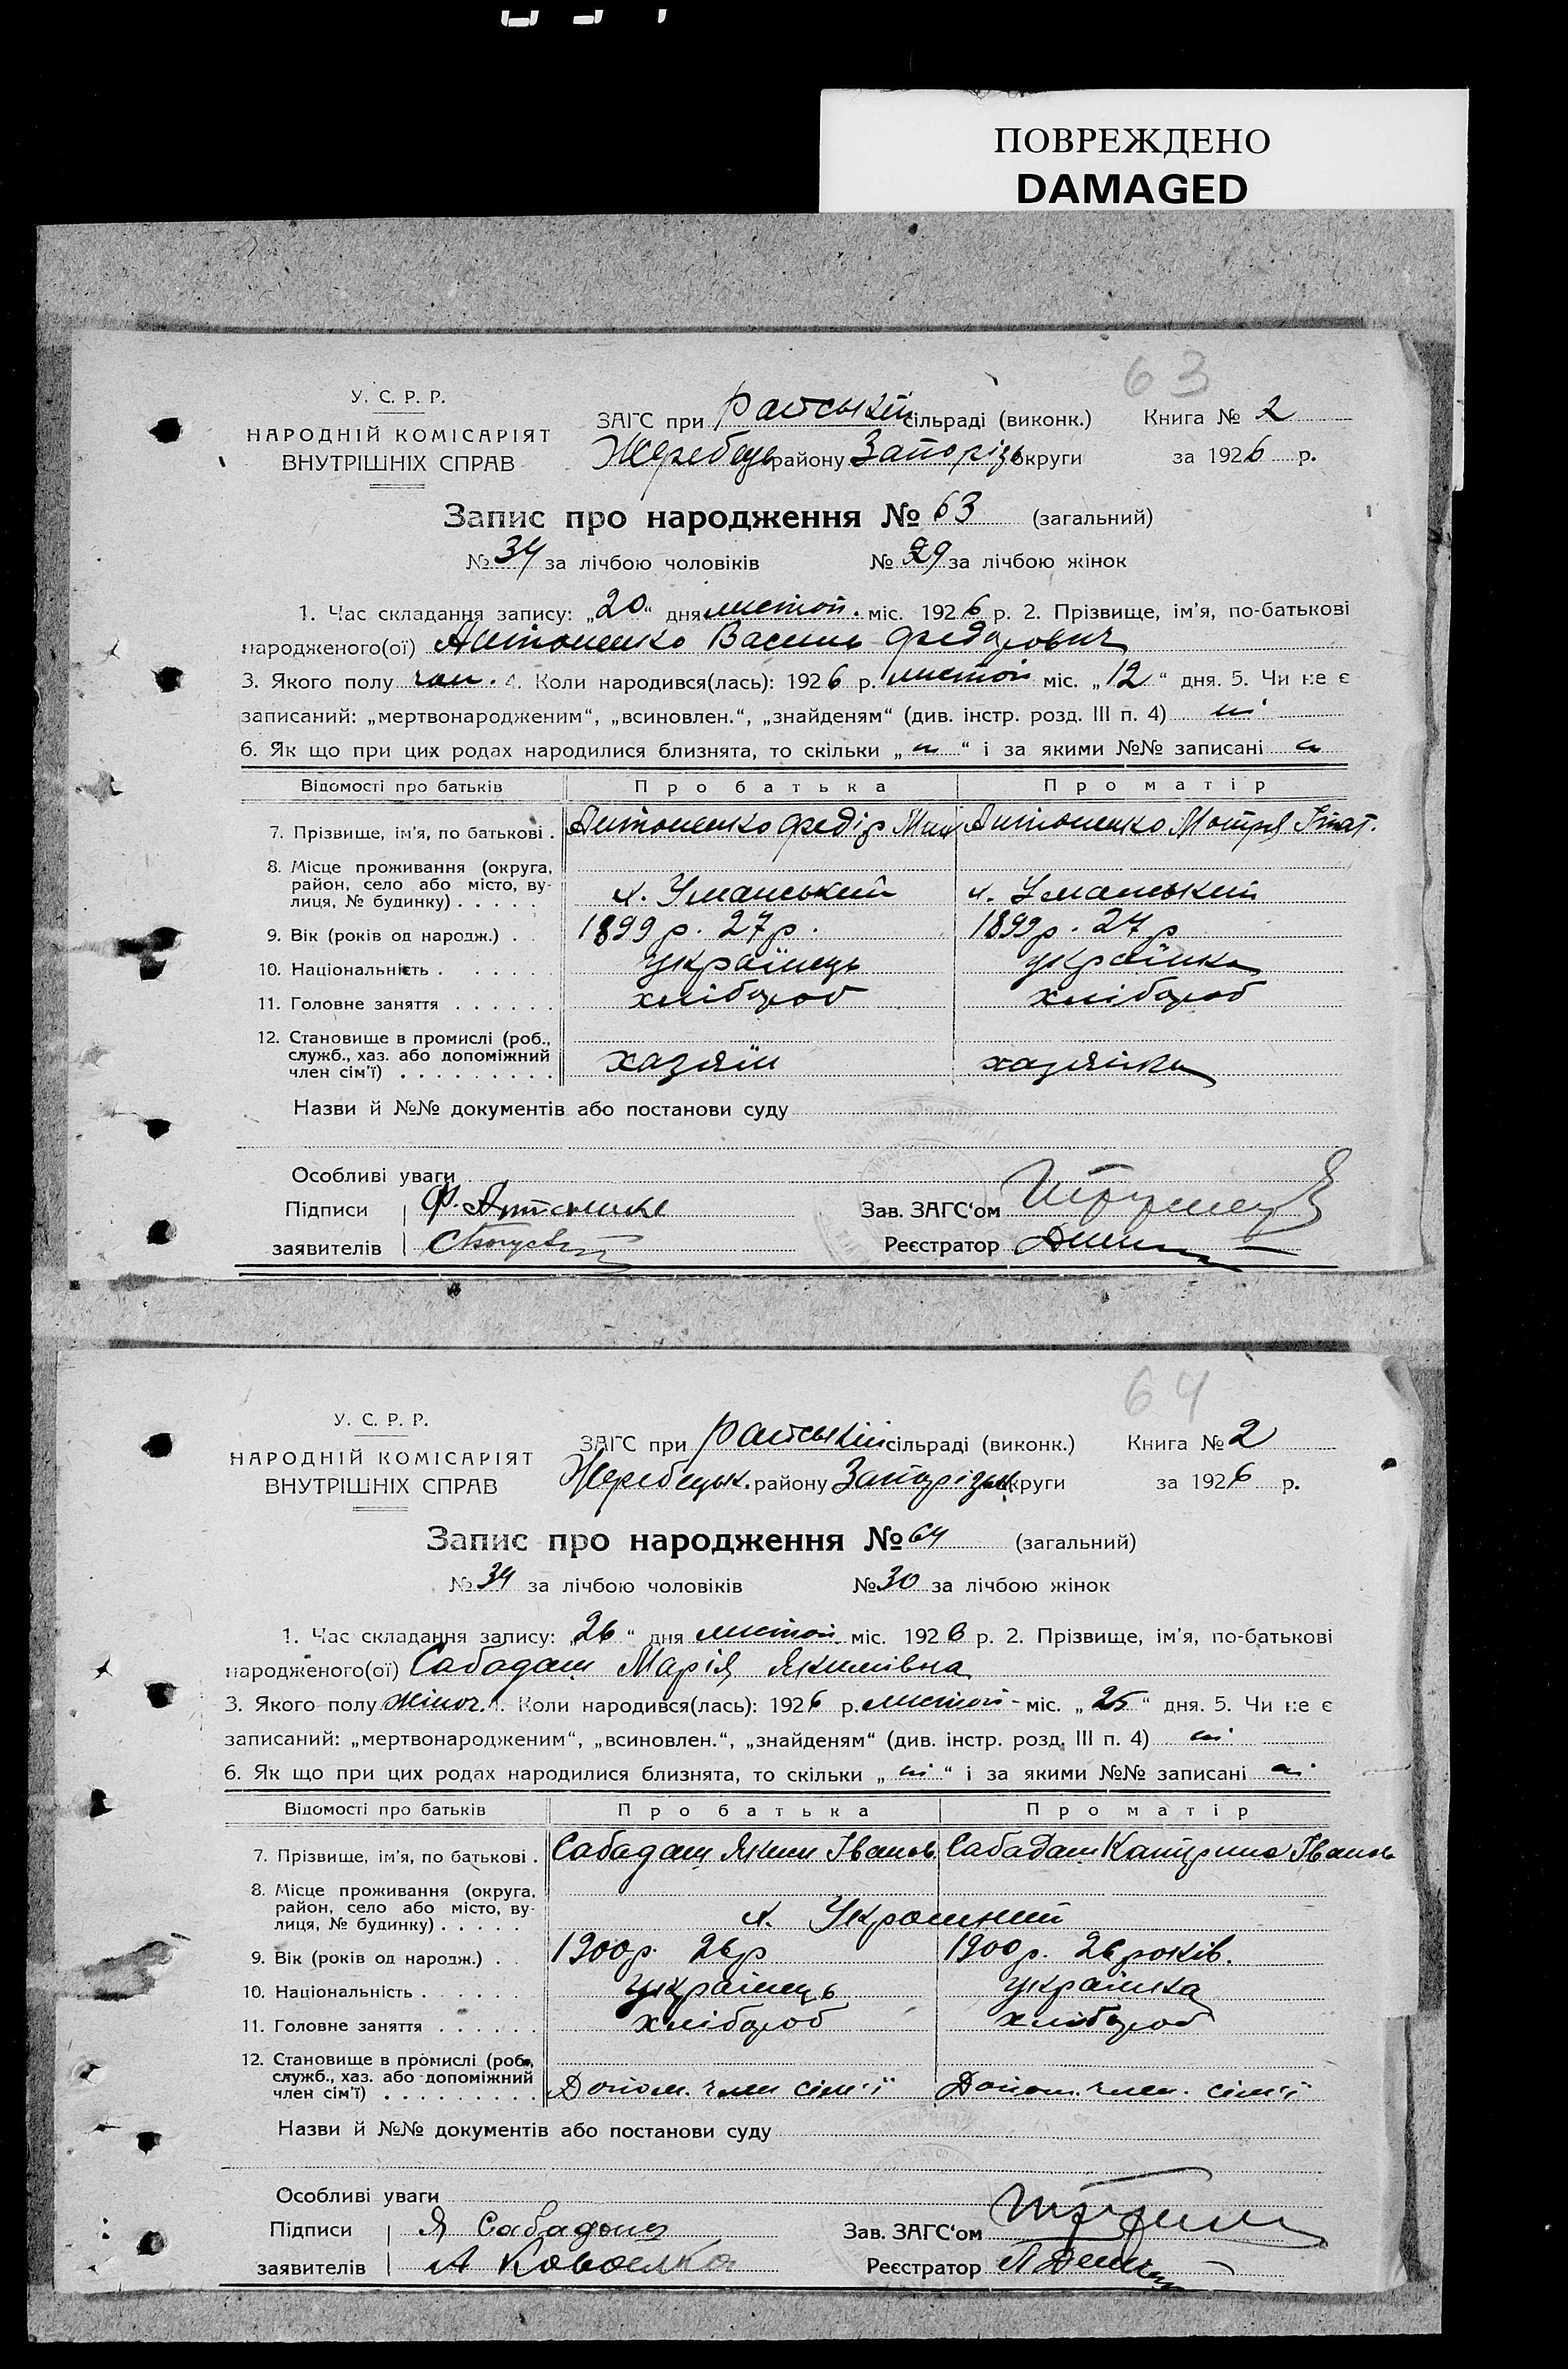 ПОВРЕЖДЕНО
DAMAGED
63
У. С. Р. Р.
НАРОДНІЙ КОМІСАРІЯТ
ВНУТРІШНІХ СПРАВ
ЗАГС при Райській сільраді (виконк.) Книга № 2
Жеребець району Запорізь округи за 1926 р.
Запис про народження № 63 (загальний)
№ 34 за лічбою чоловіків № 29 за лічбою жінок
1. Час складання запису: „20“ дня листоп. міс. 1926 р. 2. Прізвище, ім’я, по-батькові
народженого(ої) Антоненко Василь Федорович
3. Якого полу чол. 4. Коли народився(лась): 1926 р. листоп міс. „12“ дня. 5. Чи не є
записаний: „мертвонародженим“, „всиновлен.“, „знайденям“ (див. інстр. розд. III п. 4) ні
6. Як що при цих родах народилися близнята, то скільки „ “ і за якими №№ записані
Відомості про батьків Про батька Про матір
7. Прізвище, ім’я, по батькові . Антоненко Федір Мих Антоненко Мотря Гнат.
8. Місце проживання (округа,
район, село або місто, ву-
лиця, № будинку) . . . . . х. Уманський х. Уманський
9. Вік (років од народж.) . 1899 р. 27 р. 1899 р. 27 р
10. Національність . . . . . . українець українка
11. Головне заняття . . . . . . хлібороб хлібороб
12. Становище в промислі (роб.,
служб., хаз. або допоміжний
член сім’ї) . . . . . . . . . хазяїн хазяйка
Назви й №№ документів або постанови суду
Особливі уваги
Підписи Ф. Антоненко Зав. ЗАГС‘ом
заявителів Реєстратор
64
У. С. Р. Р.
НАРОДНІЙ КОМІСАРІЯТ
ВНУТРІШНІХ СПРАВ
ЗАГС при Райській сільраді (виконк.) Книга № 2
Жеребецьк. району Запорізьк округи за 1926 р.
Запис про народження № 64 (загальний)
№ 34 за лічбою чоловіків № 30 за лічбою жінок
1. Час складання запису: „26“ дня листоп. міс. 1926 р. 2. Прізвище, ім’я, по-батькові
народженого(ої) Сабадаш Марія Якимівна
3. Якого полу жіноч. 4. Коли народився(лась): 1926 р. листоп- міс. „25“ дня. 5. Чи не є
записаний: „мертвонародженим“, „всиновлен.“, „знайденям“ (див. інстр. розд. III п. 4) ні
6. Як що при цих родах народилися близнята, то скільки „ні“ і за якими №№ записані ні
Відомості про батьків Про батька Про матір
7. Прізвище, ім’я, по батькові . Сабадаш Яким Іванов. Сабадаш Катерина Іванов
8. Місце проживання (округа,
район, село або місто, ву-
лиця, № будинку) . . . . . х.
9. Вік (років од народж.) . 1900 р. 26 р 1900 р. 26 років.
10. Національність . . . . . . українець українка
11. Головне заняття . . . . . . хлібороб хлібороб
12. Становище в промислі (роб.,
служб., хаз. або допоміжний
член сім’ї) . . . . . . . . . Допом. член сім'ї Допом. член. сім'ї
Назви й №№ документів або постанови суду
Особливі уваги
Підписи Я Сабадаш Зав. ЗАГС‘ом
заявителів А Реєстратор